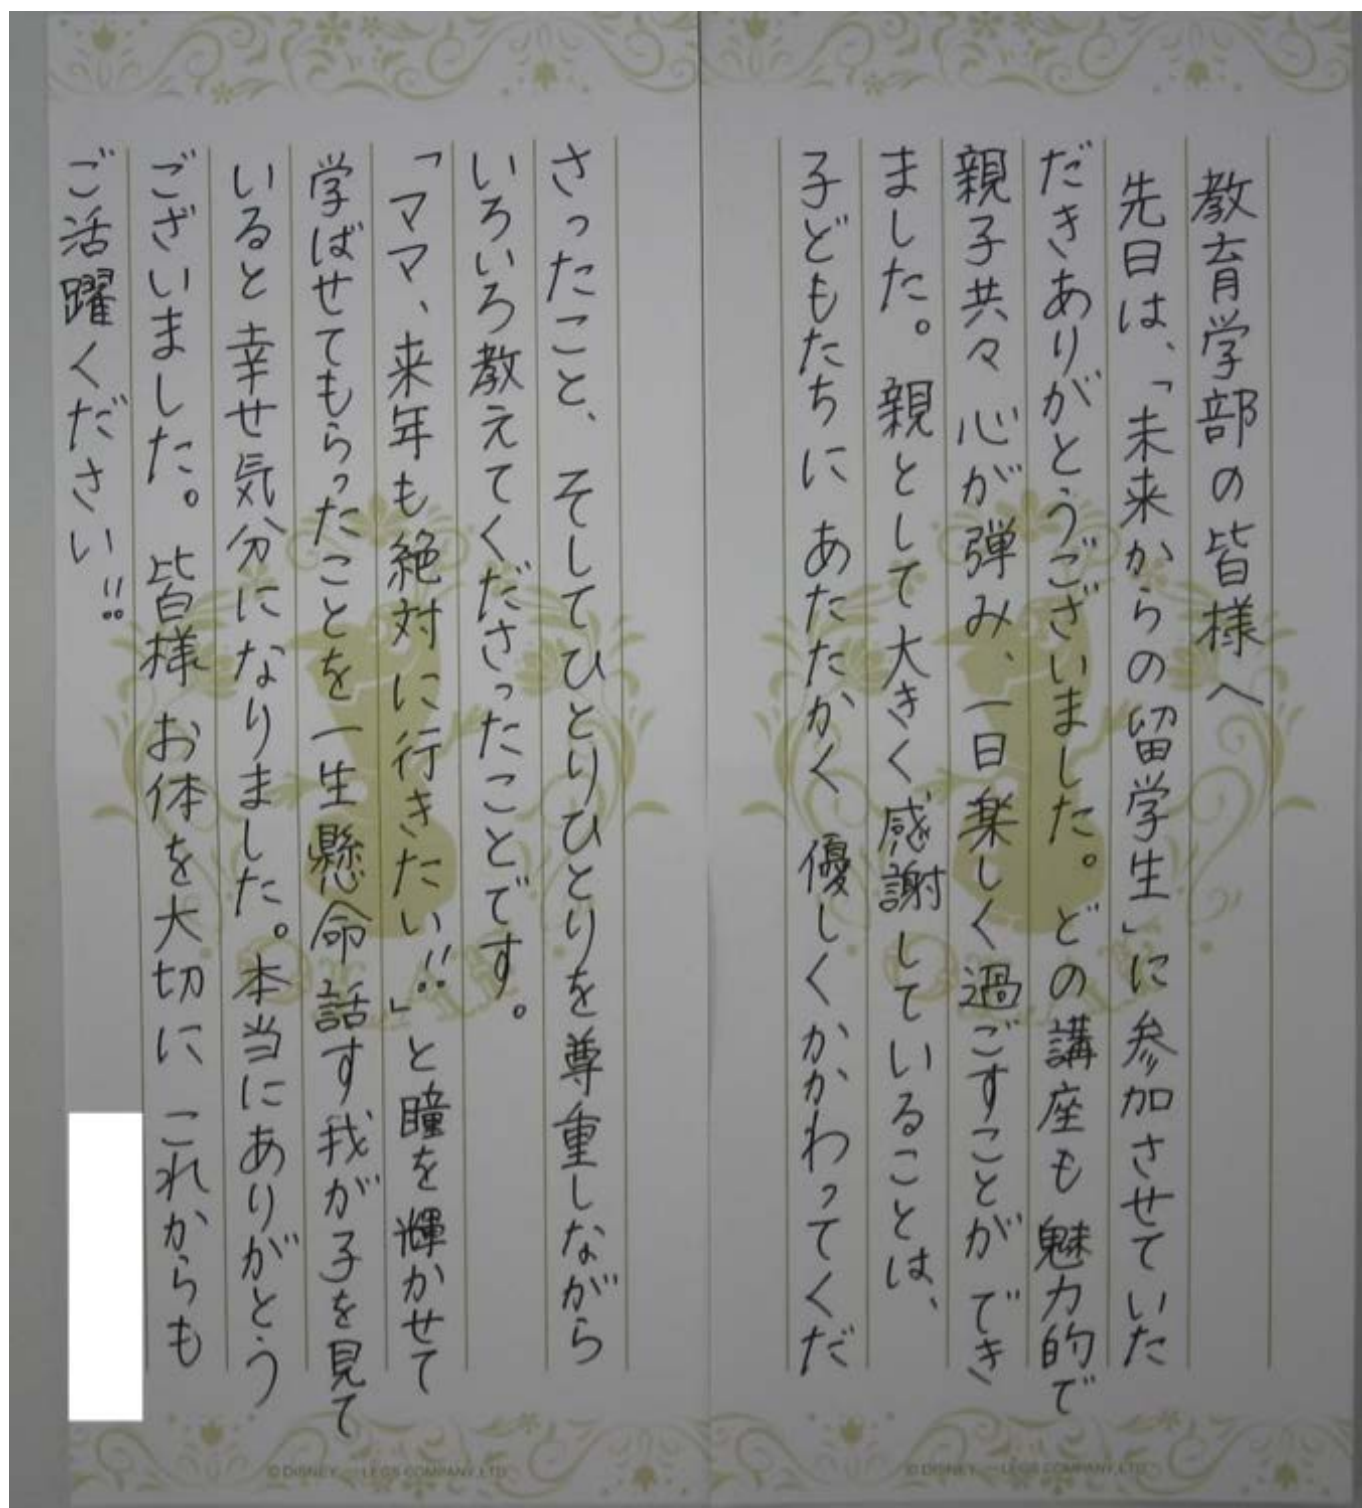 教育学部の皆様へ
先日は、「未来からの留学生」に参加させていた
だきありがとうございました。どの講座も魅力的で
親子共々 心が弾み、一日楽しく過ごすことが でき
ました。親として大きく感謝していることは、
子どもたちに あたたかく 優しくかかわってくだ
さったこと、そしてひとりひとりを尊重しながら
いろいろ教えてくださったことです。
「ママ、来年も絶対に行きたい!!」と瞳を輝かせて
学ばせてもらったことを一生懸命話す我が子を見て
いると幸せ気分になりました。本当にありがとう
ございました。皆様 お体を大切に これからも
ご活躍ください!!
© DISNEY LEGS COMPANY,LTD
© DISNEY LEGS COMPANY,LTD